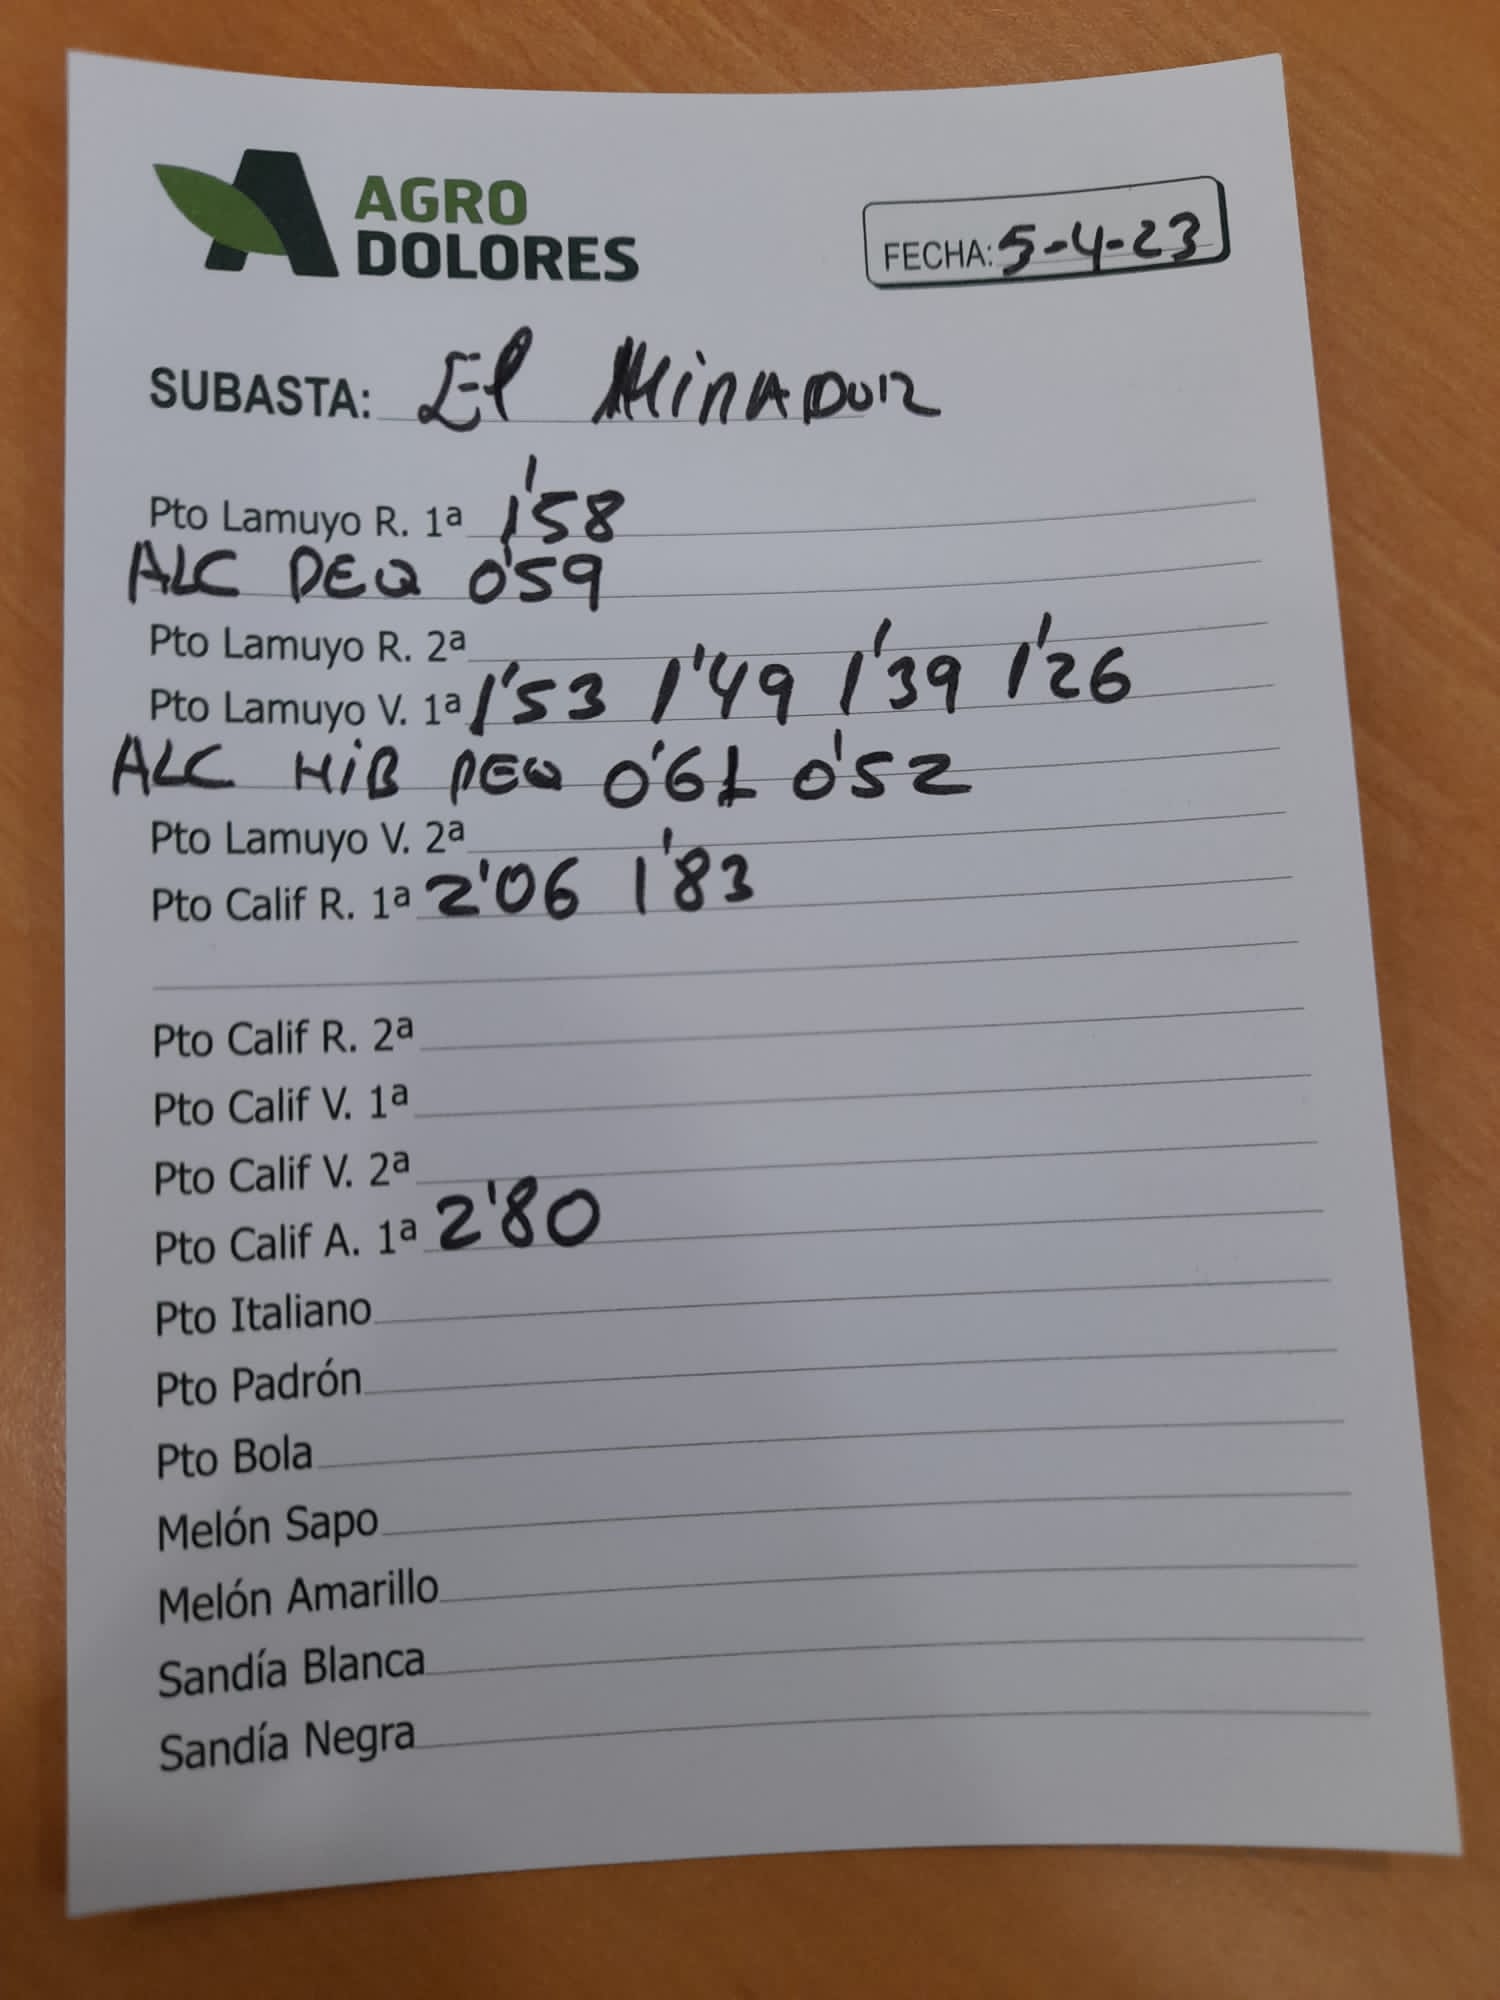 AGRO
DOLORES
FECHA: 5-4-23
SUBASTA: El MiRADOR
Pto Lamuyo R. 1ª 1'58
ALC PEQ 0'59
Pto Lamuyo R. 2ª
Pto Lamuyo V. 1ª 1'53 1'49 1'39 1'26
ALC HiB PEQ 0'61 0'52
Pto Lamuyo V. 2ª
Pto Calif R. 1ª 2'06 1'83
Pto Calif R. 2ª
Pto Calif V. 1ª
Pto Calif V. 2ª
Pto Calif A. 1ª 2'80
Pto Italiano
Pto Padrón
Pto Bola
Melón Sapo
Melón Amarillo
Sandía Blanca
Sandía Negra